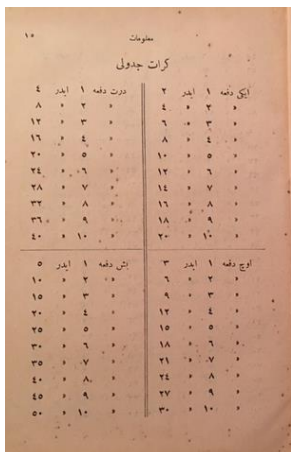 ١٥
معلومات
كرات جدولی
ایكی دفعه ١ ایدر ٢
» ٢ » ٤
» ٣ » ٦
» ٤ » ٨
» ٥ » ١٠
» ٦ » ١٢
» ٧ » ١٤
» ٨ » ١٦
» ٩ » ١٨
» ١٠ » ٢٠
درت دفعه ١ ایدر ٤
» ٢ » ٨
» ٣ » ١٢
» ٤ » ١٦
» ٥ » ٢٠
» ٦ » ٢٤
» ٧ » ٢٨
» ٨ » ٣٢
» ٩ » ٣٦
» ١٠ » ٤٠
اوچ دفعه ١ ایدر ٣
» ٢ » ٦
» ٣ » ٩
» ٤ » ١٢
» ٥ » ١٥
» ٦ » ١٨
» ٧ » ٢١
» ٨ » ٢٤
» ٩ » ٢٧
» ١٠ » ٣٠
بش دفعه ١ ایدر ٥
» ٢ » ١٠
» ٣ » ١٥
» ٤ » ٢٠
» ٥ » ٢٥
» ٦ » ٣٠
» ٧ » ٣٥
» ٨ » ٤٠
» ٩ » ٤٥
» ١٠ » ٥٠